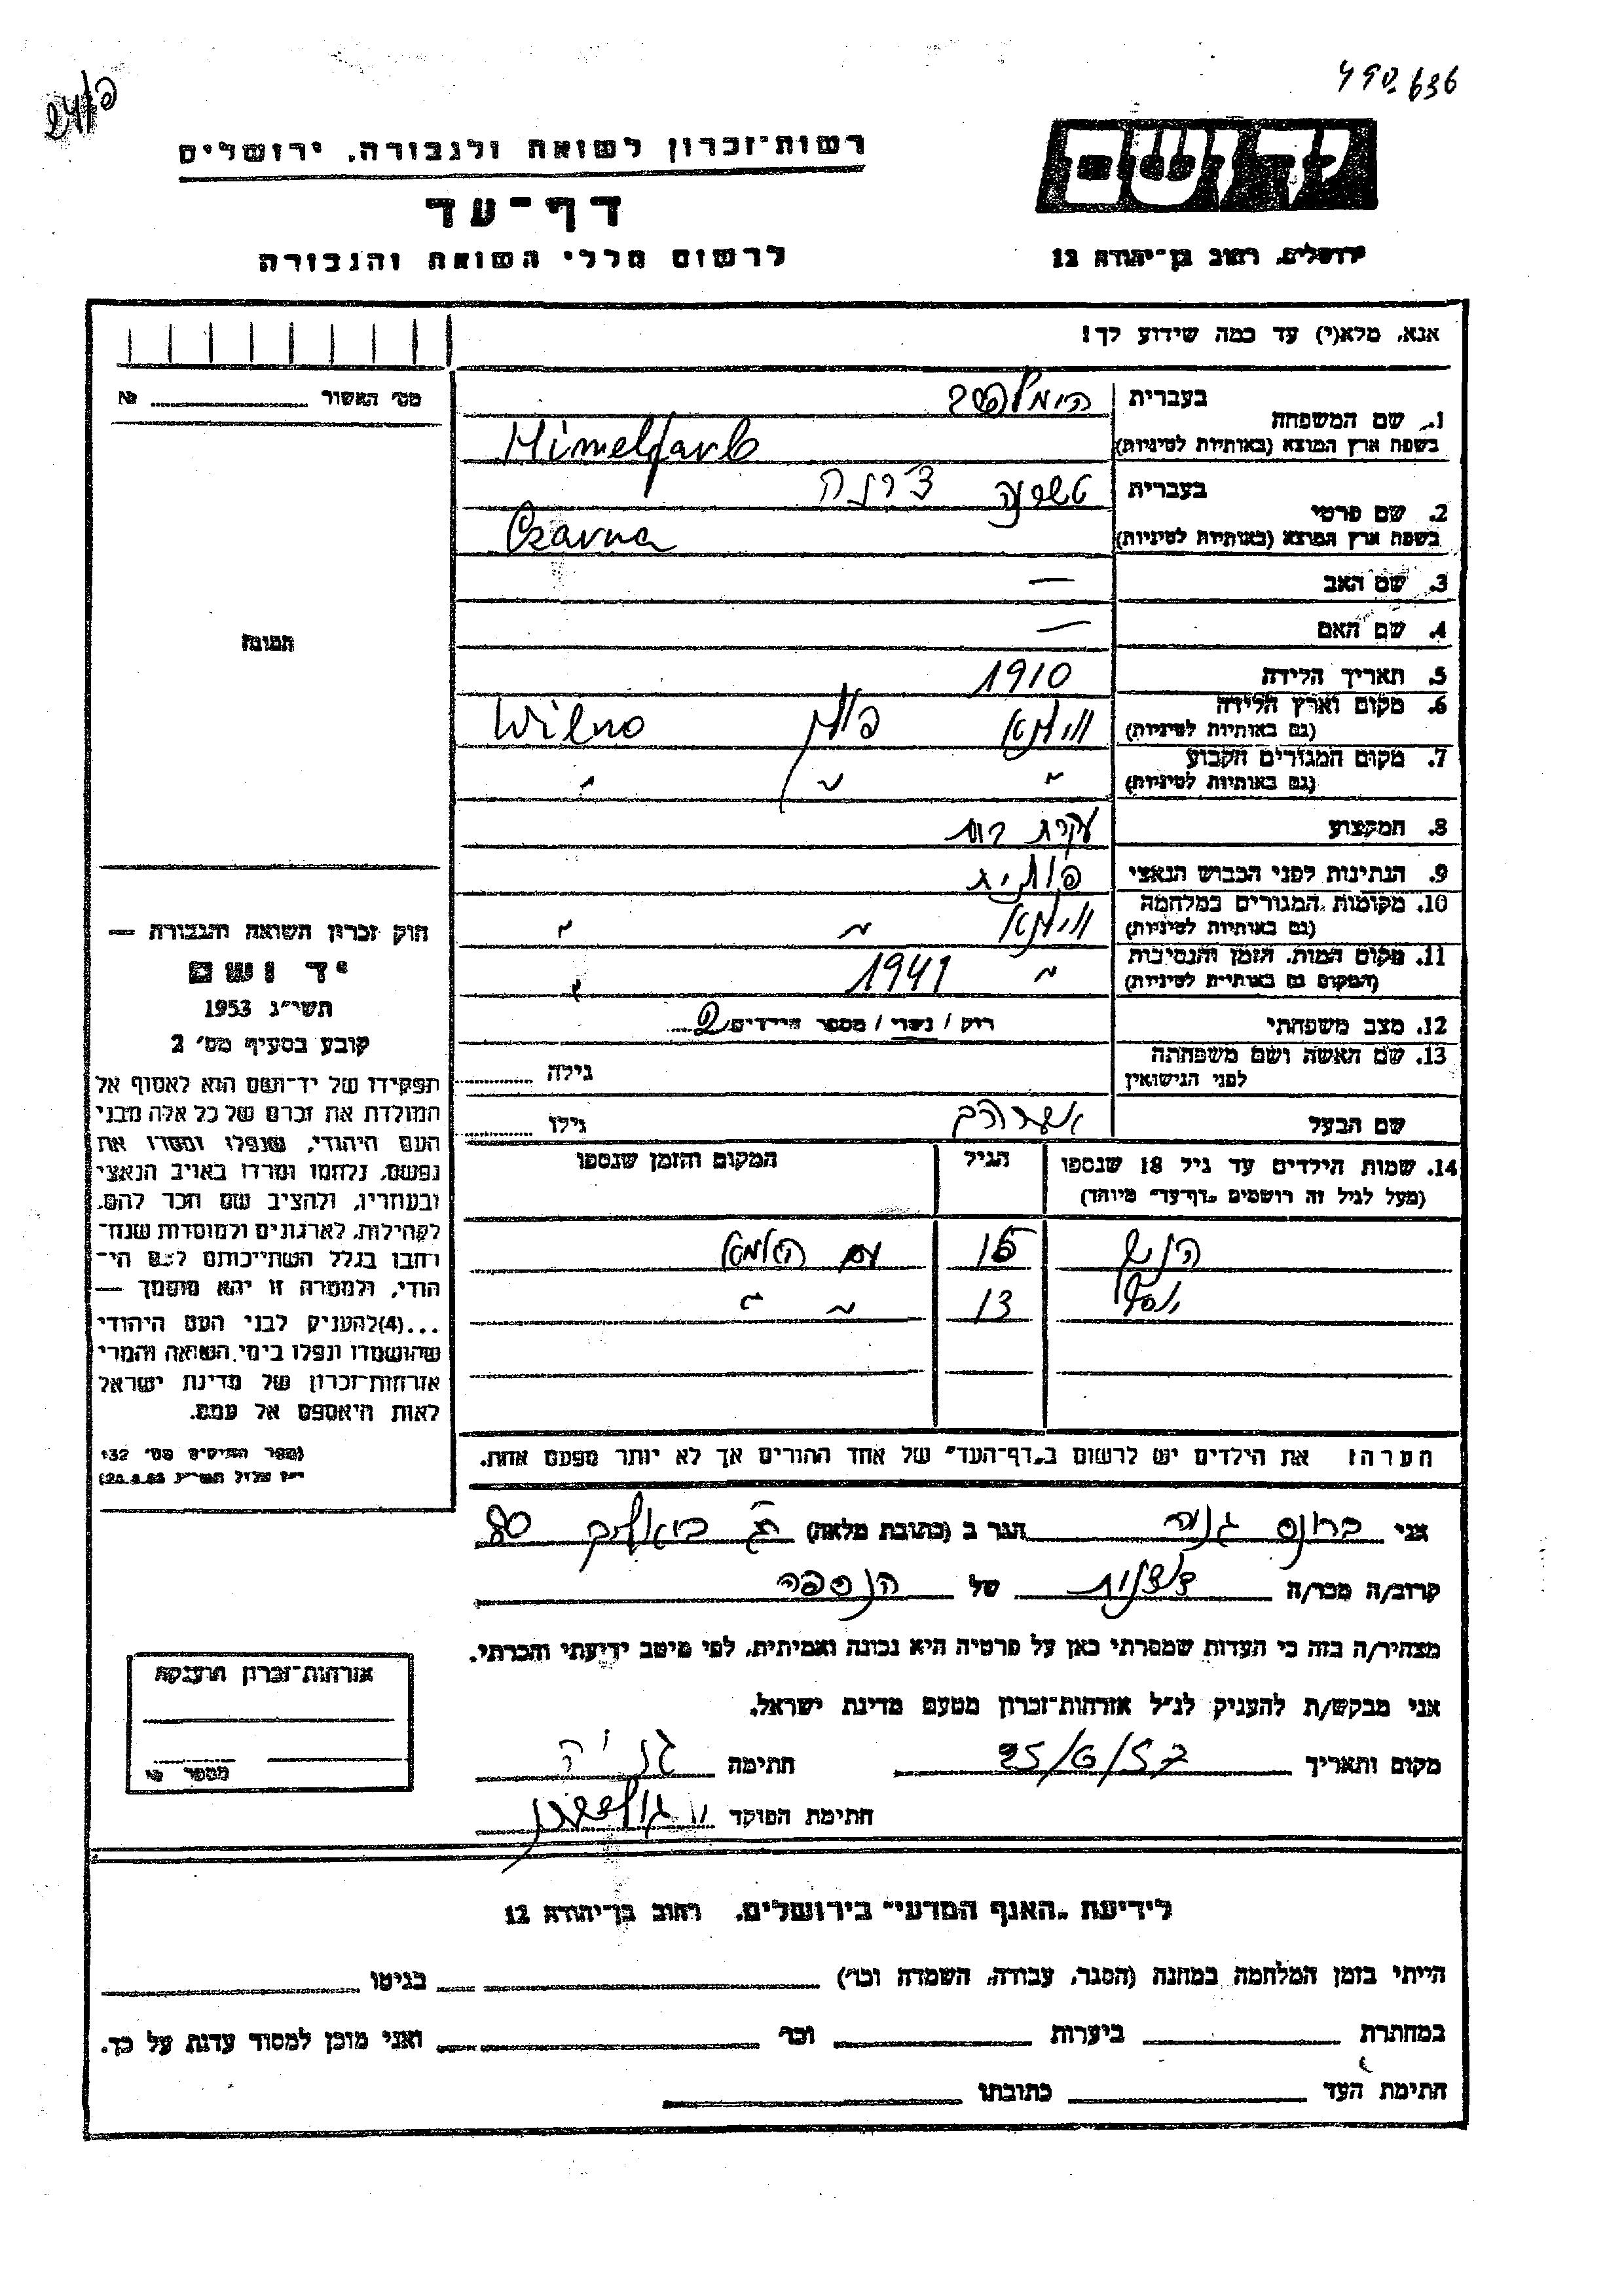 490.636
רשות־זכרון לשואה ולגבורה, ירושלים
דף־עד
לרשום חללי השואה והגבורה
יד ושם
ירושלים, רחוב בן־יהודה 12
אנא, מלא(י) עד כמה שידוע לך!
מס׳ האשור № 
1. שם המשפחה
בעברית
הימלפרב
בשפת ארץ המוצא (באותיות לטיניות)
Himelfarb
2. שם פרטי
בעברית
צ׳רנה
בשפת ארץ המוצא (באותיות לטיניות)
Czarna
3. שם האב —
4. שם האם —
5. תאריך הלידה 1910
6. מקום וארץ הלידה
(גם באותיות לטיניות)
ווילנא פולין Wilno
7. מקום המגורים הקבוע
(גם באותיות לטיניות)
״ ״ ״
8. המקצוע עקרת בית
9. הנתינות לפני הכבוש הנאצי פולנית
10. מקומות המגורים במלחמה
(גם באותיות לטיניות)
ווילנא ״ ״
11. מקום המות, הזמן והנסיבות
(המקום גם באותיות לטיניות)
״ 1941 ״
12. מצב משפחתי
רוק / נשוי / מספר הילדים 2
13. שם האשה ושם משפחתה
לפני הנישואין
גילה
שם הבעל
גילו
14. שמות הילדים עד גיל 18 שנספו
(מעל לגיל זה רושמים „דף־עד״ מיוחד)
הגיל
המקום והזמן שנספו
15
13 ״ ״
הערה: את הילדים יש לרשום ב„דף־העד״ של אחד ההורים אך לא יותר מפעם אחת.
תמונה
חוק זכרון השואה והגבורה —
יד ושם
תשי״ג 1953
קובע בסעיף מס׳ 2
תפקידו של יד־ושם הוא לאסוף אל
המולדת את זכרם של כל אלה מבני
העם היהודי, שנפלו ומסרו את
נפשם, נלחמו ומרדו באויב הנאצי
ובעוזריו, ולהציב שם וזכר להם,
לקהילות, לארגונים ולמוסדות שנח־
רבו בגלל השתייכותם לעם הי־
הודי, ולמטרה זו יהא מוסמך —
...(4) להעניק לבני העם היהודי
שהושמדו ונפלו בימי השואה והמרי
אזרחות־זכרון של מדינת ישראל
לאות היאספם אל עמם.
(ספר החוקים מס׳ 132
י״ז אלול תשי״ג 28.8.53)
אני הגר ב (כתובת מלאה) ביאליק 80
קרוב/ה מכר/ה של הנספה
מצהיר/ה בזה כי העדות שמסרתי כאן על פרטיה היא נכונה ואמיתית, לפי מיטב ידיעתי והכרתי.
אני מבקש/ת להעניק לנ״ל אזרחות־זכרון מטעם מדינת ישראל.
מקום ותאריך 25/6/57 חתימה
חתימת הפוקד
אזרחות־זכרון הוענקה
מספר
לידיעת „האגף המדעי״ בירושלים, רחוב בן־יהודה 12
הייתי בזמן המלחמה במחנה (הסגר, עבודה, השמדה וכו׳) בגיטו
במחתרת ביערות וכו׳ ואני מוכן למסור עדות על כך.
חתימת העד כתובתו